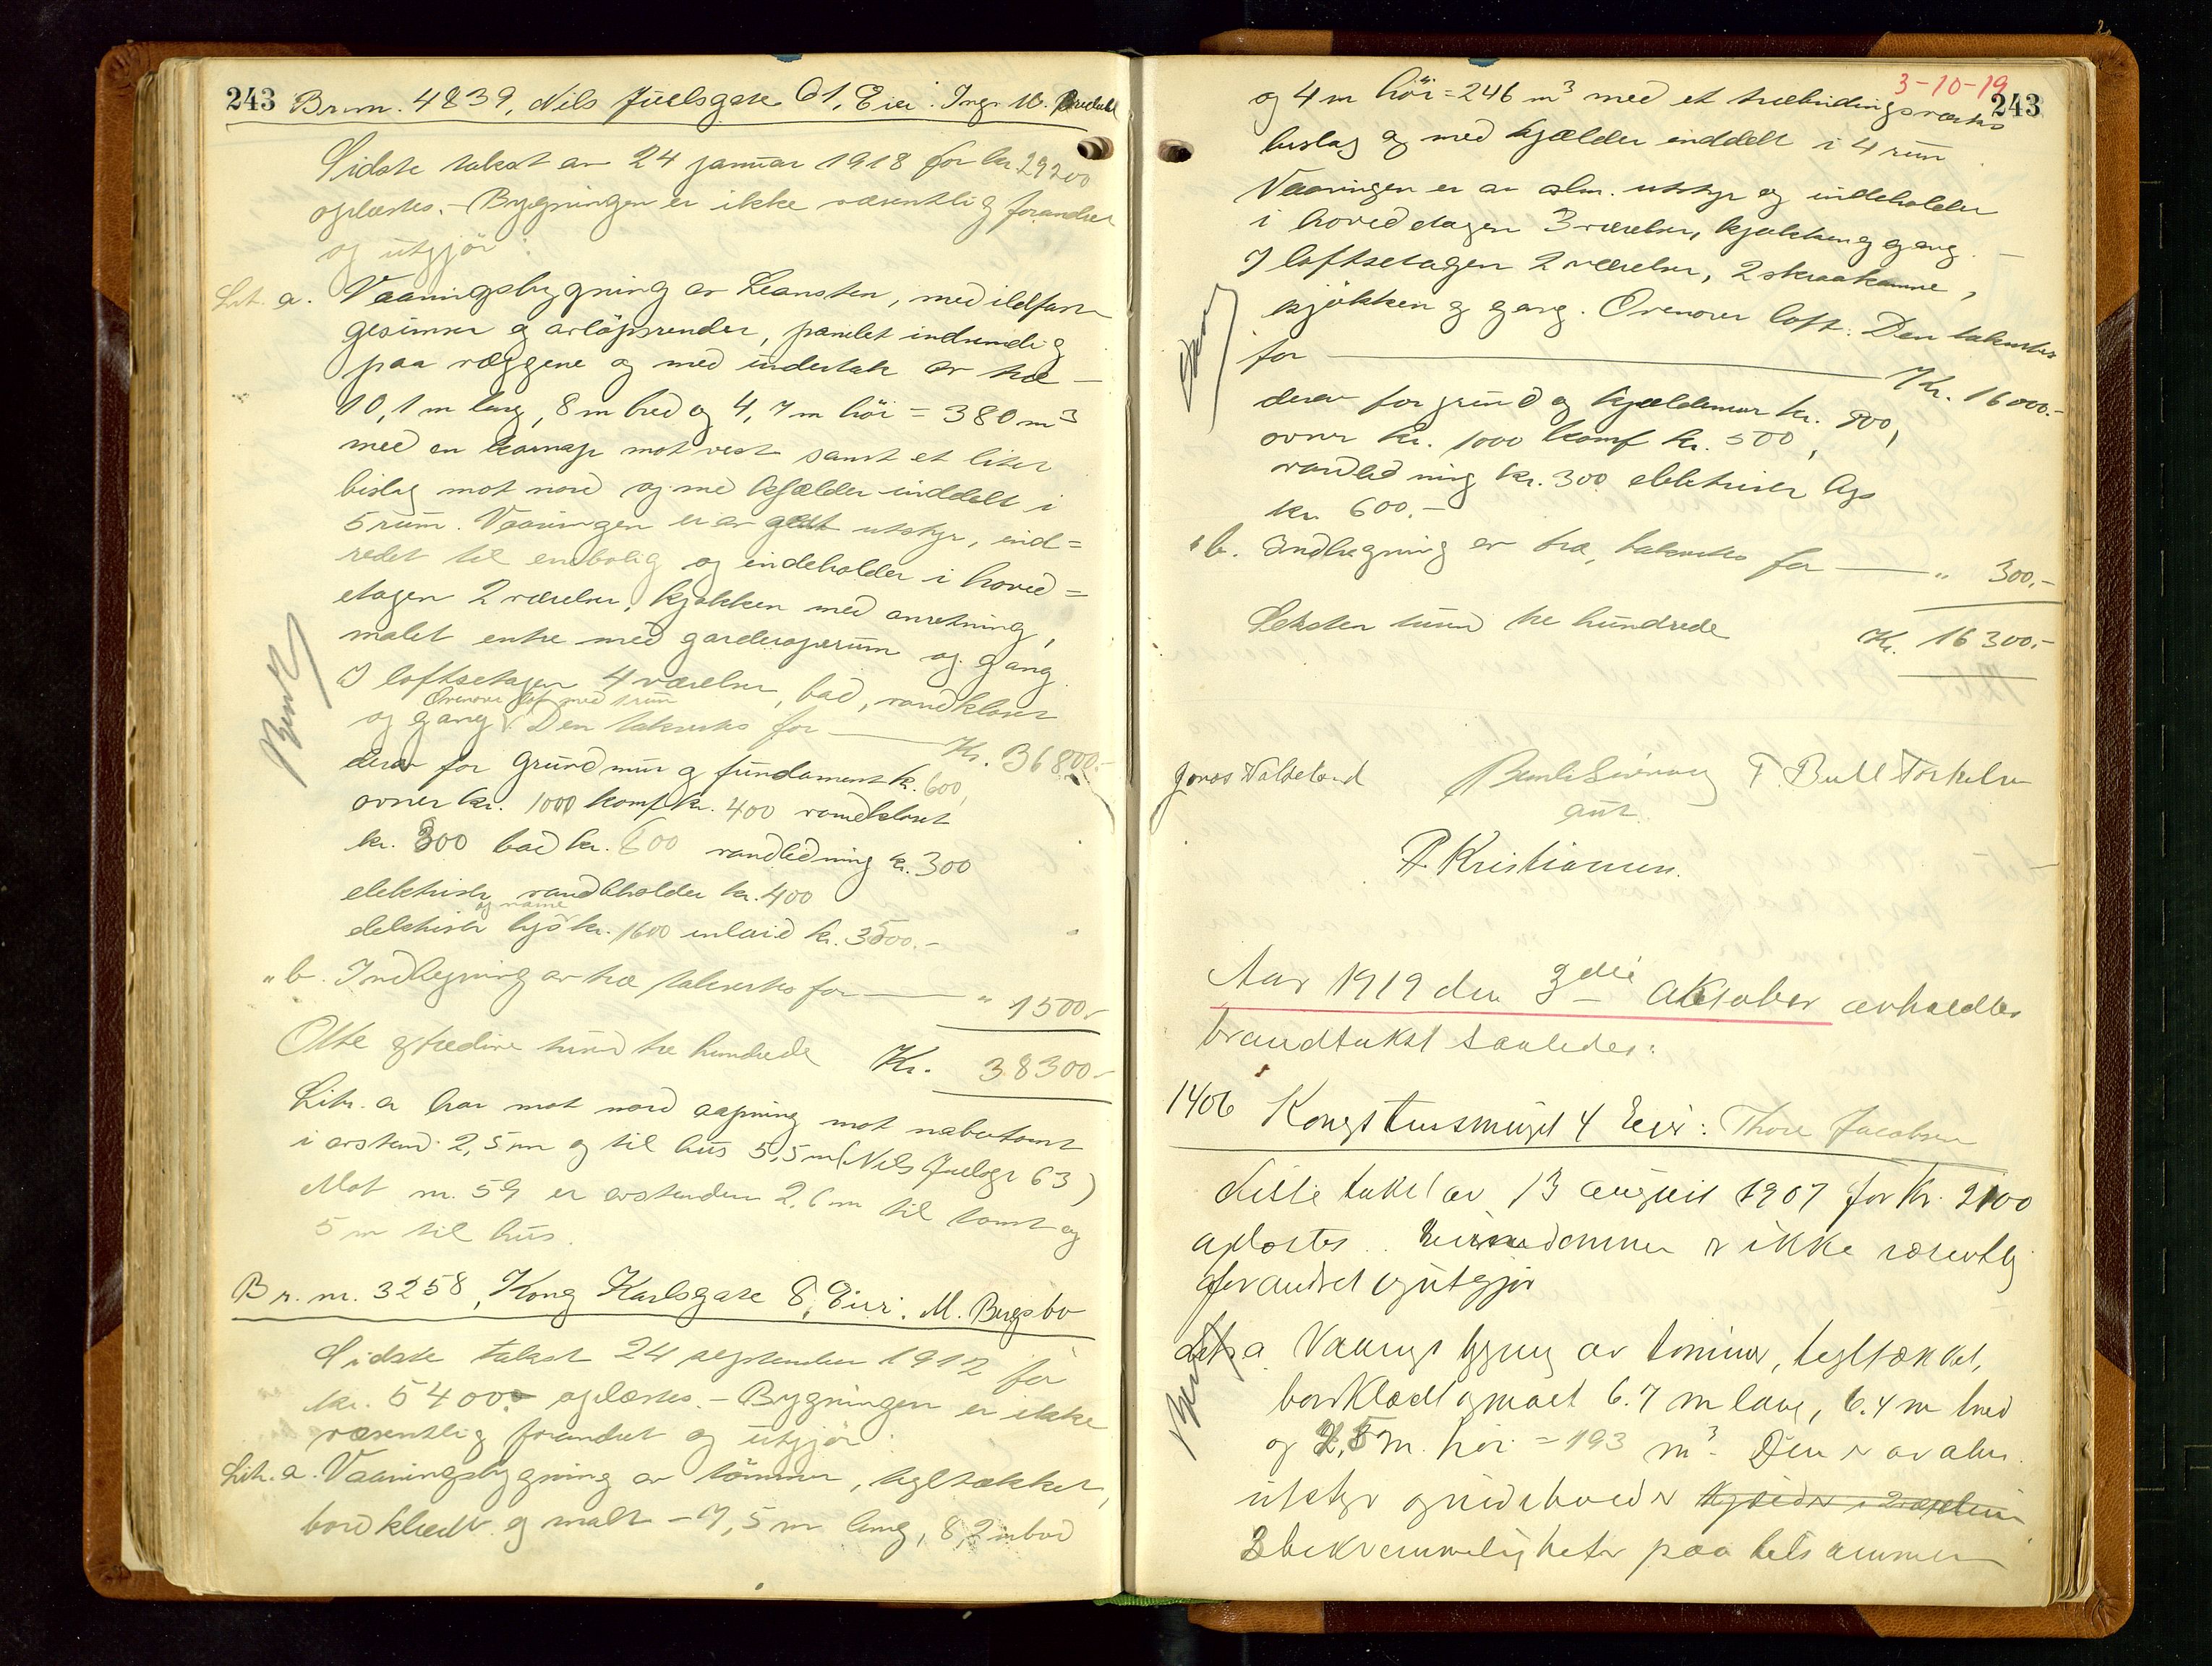 243 Br.nr. 4839, Nils Juelsgate 61, Eier: Ingr. W.
Sidste takst av 24 januar 1918 for kr. 29200
oplæstes. - Bygningen er ikke væsentlig forandret
og utgjör:
Litr. a. Vaaningsbygning av Leansten, med ildfast
gesimser og avlöpsrender, panelet indvendig
paa væggene og med undertak av træ -
10,1 m lang, 8 m bred og 4,7 m höi = 380 m³
med en karnap mot vest samt et litet
bislag mot nord og med kjælder inddelt i
5 rum. Vaaningen er av godt utstyr, ind=
redet til enebolig og indeholder i hoved=
etagen 2 værelser, kjökken med anretning,
malet entre med garderoperum og gang.
I loftsetagen 4 værelser, bad, vandkloset
Ovenover loft med 1 rum
og gang V. Den takseres for — Kr. 36800.-
derav for grundmur og fundament kr. 600,
ovner kr. 1000 komf. kr. 400 vandkloset
kr. 300 bad kr. 600 vandledning kr. 300
elektrisk vandbeholder kr. 400
og varme
elektrisk lys kr. 1600 inlaid kr. 3500.-
Bendt
" b. Indhegning av træ takseres for — " 1500.-
Otte og tredive tusind tre hundrede Kr. 38300.-
Litr. a har mot nord aapning mot nabotomt
i avstand 2,5 m og til hus 5,5 m (Nils Juelsgt 63)
Mot nr. 59 er avstanden 2,6 m til tomt og
5 m til hus.
Br. nr. 3258, Kong Karlsgate 8, Eier: M. Bergsbo
Sidste takst 24 september 1912 for
kr. 5400.- oplæstes. - Bygningen er ikke
væsentlig forandret og utgjör:
Litr. a. Vaaningsbygning av tömmer, tegltækket,
bordklædt og malt - 7,5 m lang, 8,2 m bred
3-10-19
243
og 4 m höi = 246 m³ med et træbindingsverks
bislag og med kjælder inddelt i 4 rum.
Vaaningen er av alm. utstyr og indeholder
i hovedetagen 3 værelser, kjøkken og gang. -
I loftsetagen 2 værelser, 2 skraakamre,
kjökken og gang. Ovenover loft. Den takseres
for — Kr. 16000.-
derav for grund og kjeldermur kr. 800,
ovner kr. 1000 komf kr. 500,
vandledning kr. 300 elektrisk lys
kr. 600.-
" b. Indhegning av træ, takseres for — " 300.-
Seksten tusind tre hundrede Kr. 16300.-
Jonas Valheland T. Bull Torkelsen
P. Kristiansen.
Aar 1919 den 3die Oktober avholdtes
brandtakst saaledes:
1406 Kongstensmuget 4 Eier: Thore Jacobsen
Siste takst av 13 august 1907 for Kr. 2100
oplæstes. Eiendommen er ikke væsentlig
forandret og utgjør
Litr a. Vaanings bygning av tømmer, tegltækket,
bordklædt og malt 6.7 m lang, 6.4 m bred
og 4,5 m. høi = 193 m³. Den er av alm.
utstyr og indeholder kjelder 2 værelser
3 bekvemmeligheter paa tilsammen